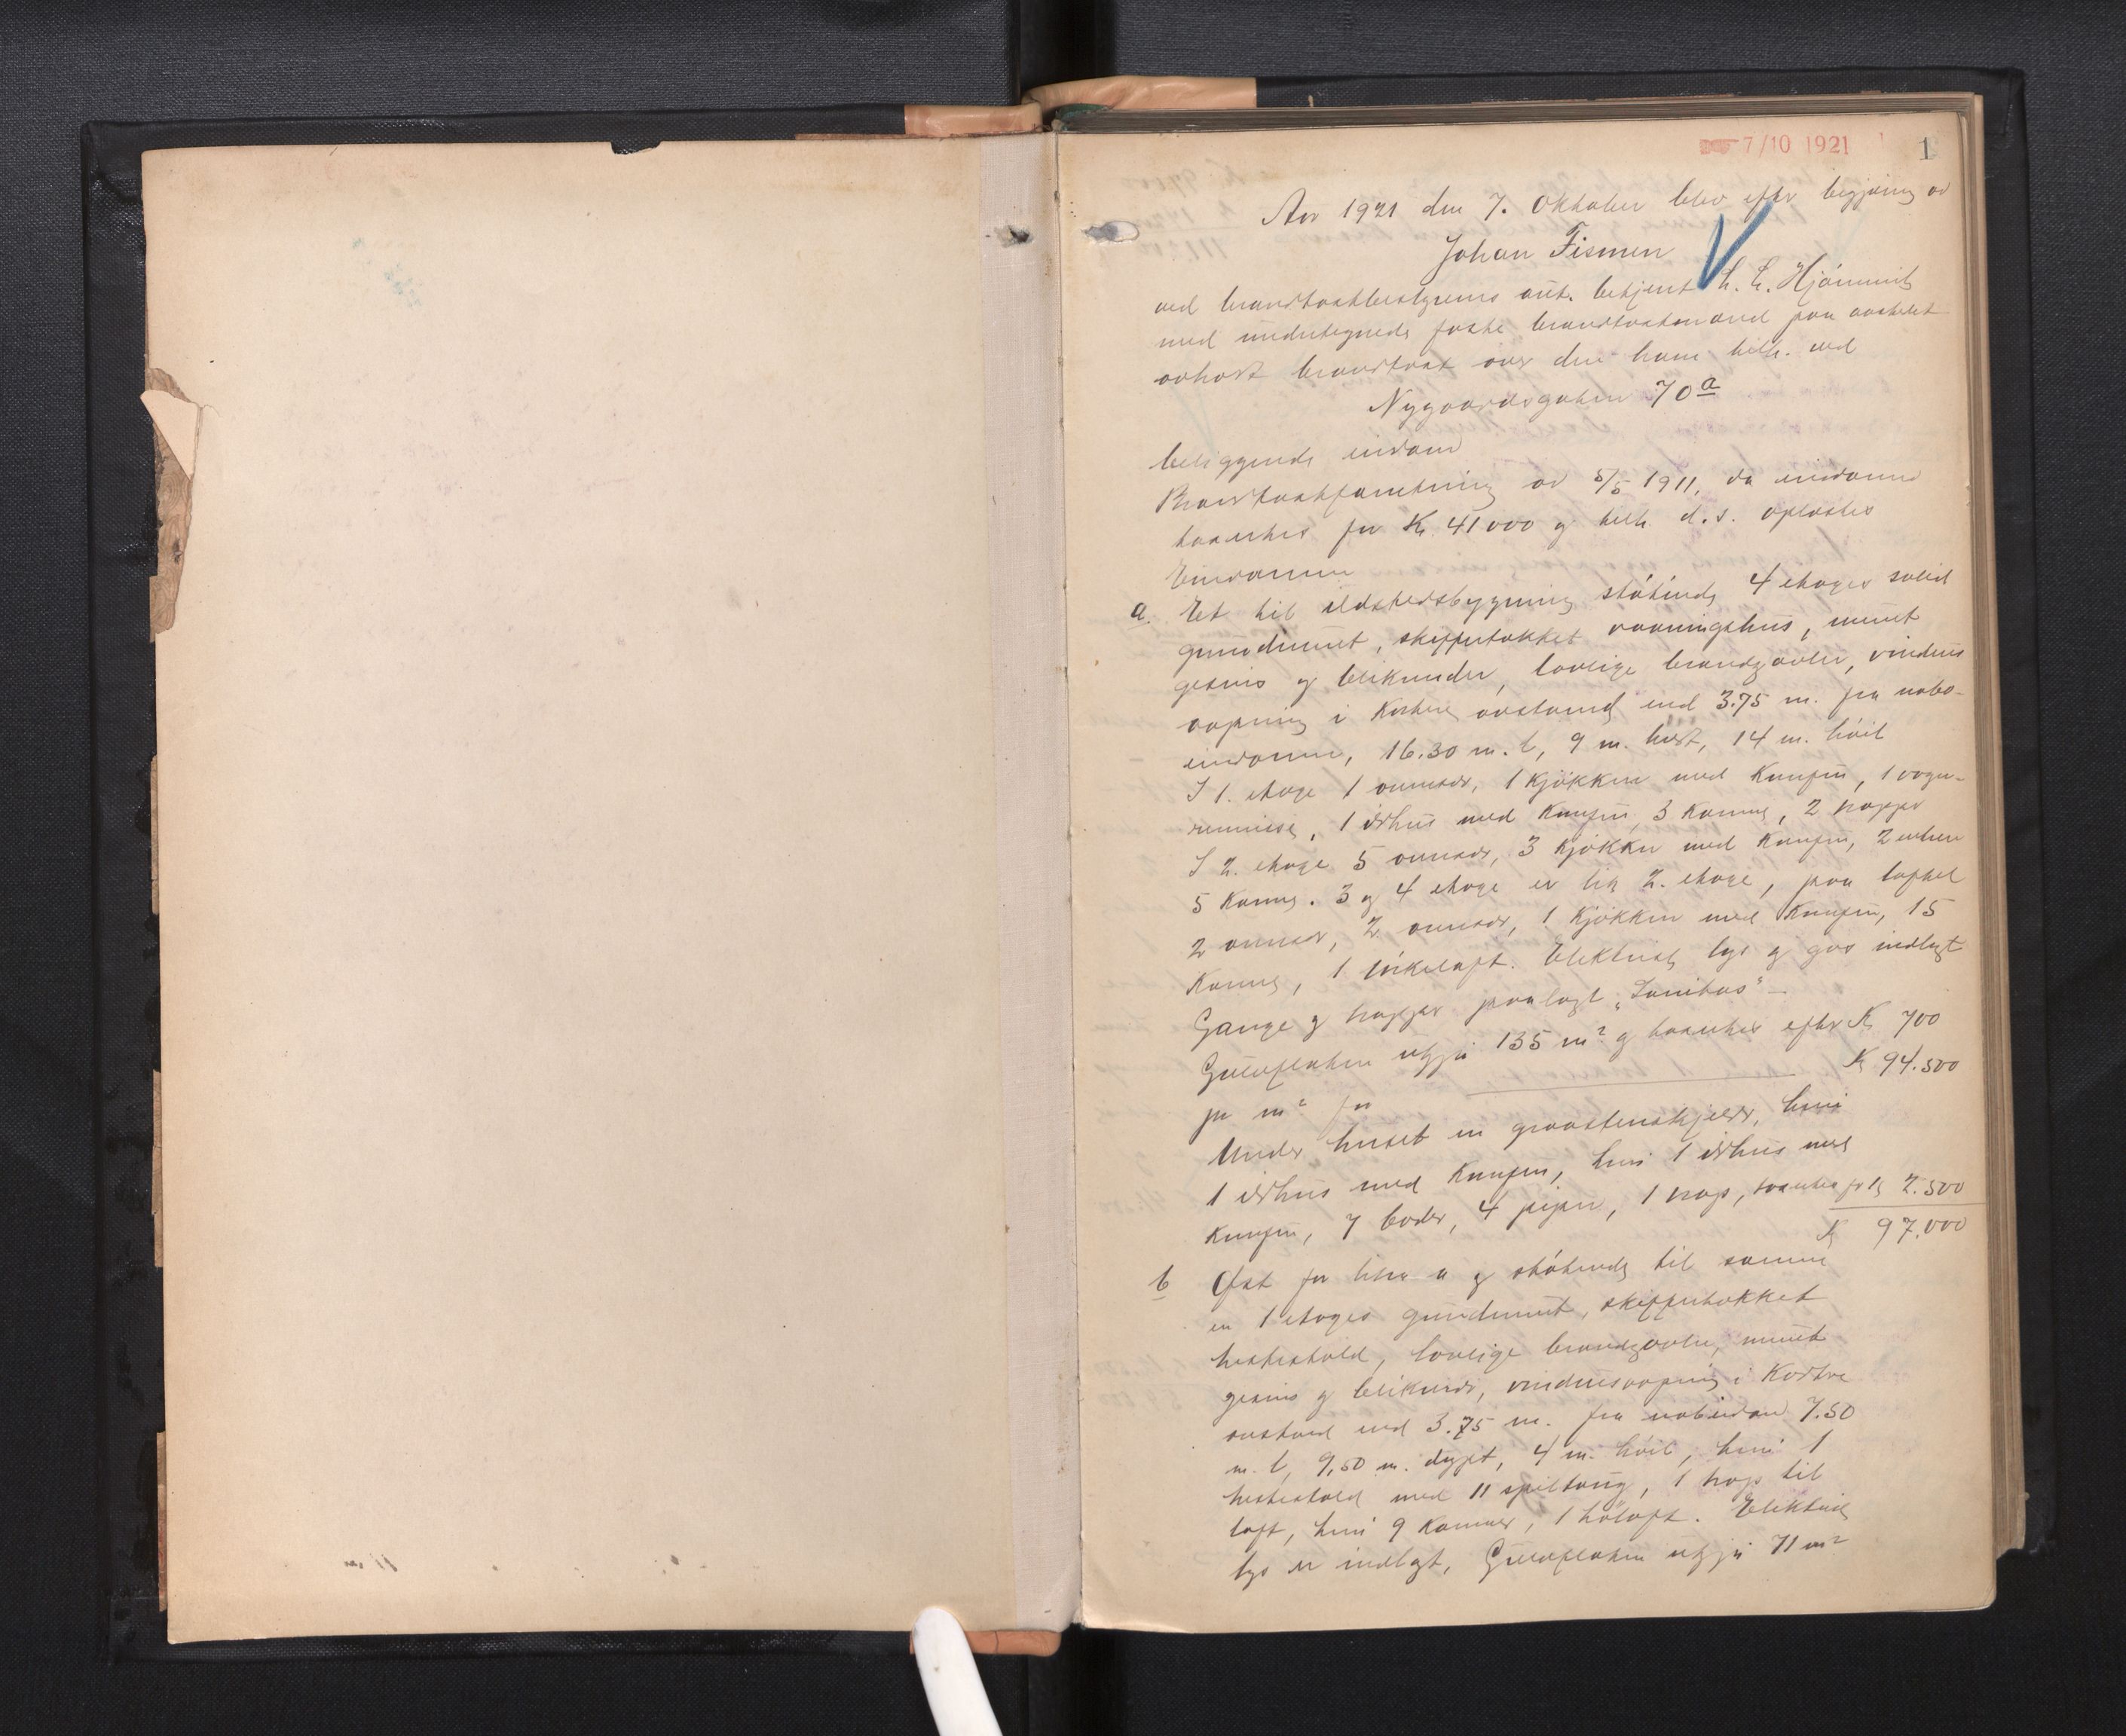 7/10 1921 1
Aar 1921 den 7. Oktober blev efter begjæring av
Johan Fismen
ved brandtakstbestyrerens aut. betjent
med undertegnede faste brandtakstmænd paa aastedet
avholdt brandtakst over den ham tilh. ved
Nygaardsgaten 70a
beliggende eiendom
Brandtakstforretning av 5/5 1911, da eiendommen
taxertes for Kr. 41000 og tilh. d.s. oplæstes
Eiendommen
a. Et til ildstedsbygning støtende 4 etages solid
grundmuret, skiffertækket vaaningshus, muret
gesims og blikrender, lovlige brandgavler, vindus
aapning i kortere avstand end 3.75 m. fra nabo-
eiendomme, 16.30 m. l, 9 m. bredt, 14 m. høit
I 1. etage 1 ovnsadr, 1 kjøkken med komfur, 1 vogn-
remisse, 1 ildhus med komfur, 3 kammer, 2 trapper
I 2. etage 5 ovnsadr, 3 kjøkken med komfur, 2
5 kammer. 3 og 4 etage er lik 2. etage, paa loftet
2 ovnsadr, 2 ovnsadr, 1 kjøkken med komfur, 15
kammer, 1 tørkeloft. Elektrisk lys og gas indlagt
Gange og trapper paalagt „Sanitas" –
Gulvflaten utgjør 135 m² og taxertes efter Kr 700
pr m² for Kr 94.500
Under huset en graastenskjelder, hvori
1 ildhus med komfur, hvori 1 ildhus med
komfur, 7 boder, 4 piper, 1 trap, taxertes for Kr 2.500
Kr 97.000
b Øst for litra a og støtende til samme
en 1 etages grundmuret, skiffertækket
hestestald, lovlige brandgavler, muret
gesims og blikrender, vindusaapning i kortere
avstand end 3.75 m. fra naboeiendom 7.50
m. l, 9,50 m. dypt, 4 m. høit, hvori 1
hestestald med 11 spiltaug, 1 trap til
loft, hvori 9 kammer, 1 høloft. Elektrisk
lys er indlagt, Gulvflaten utgjør 71 m²